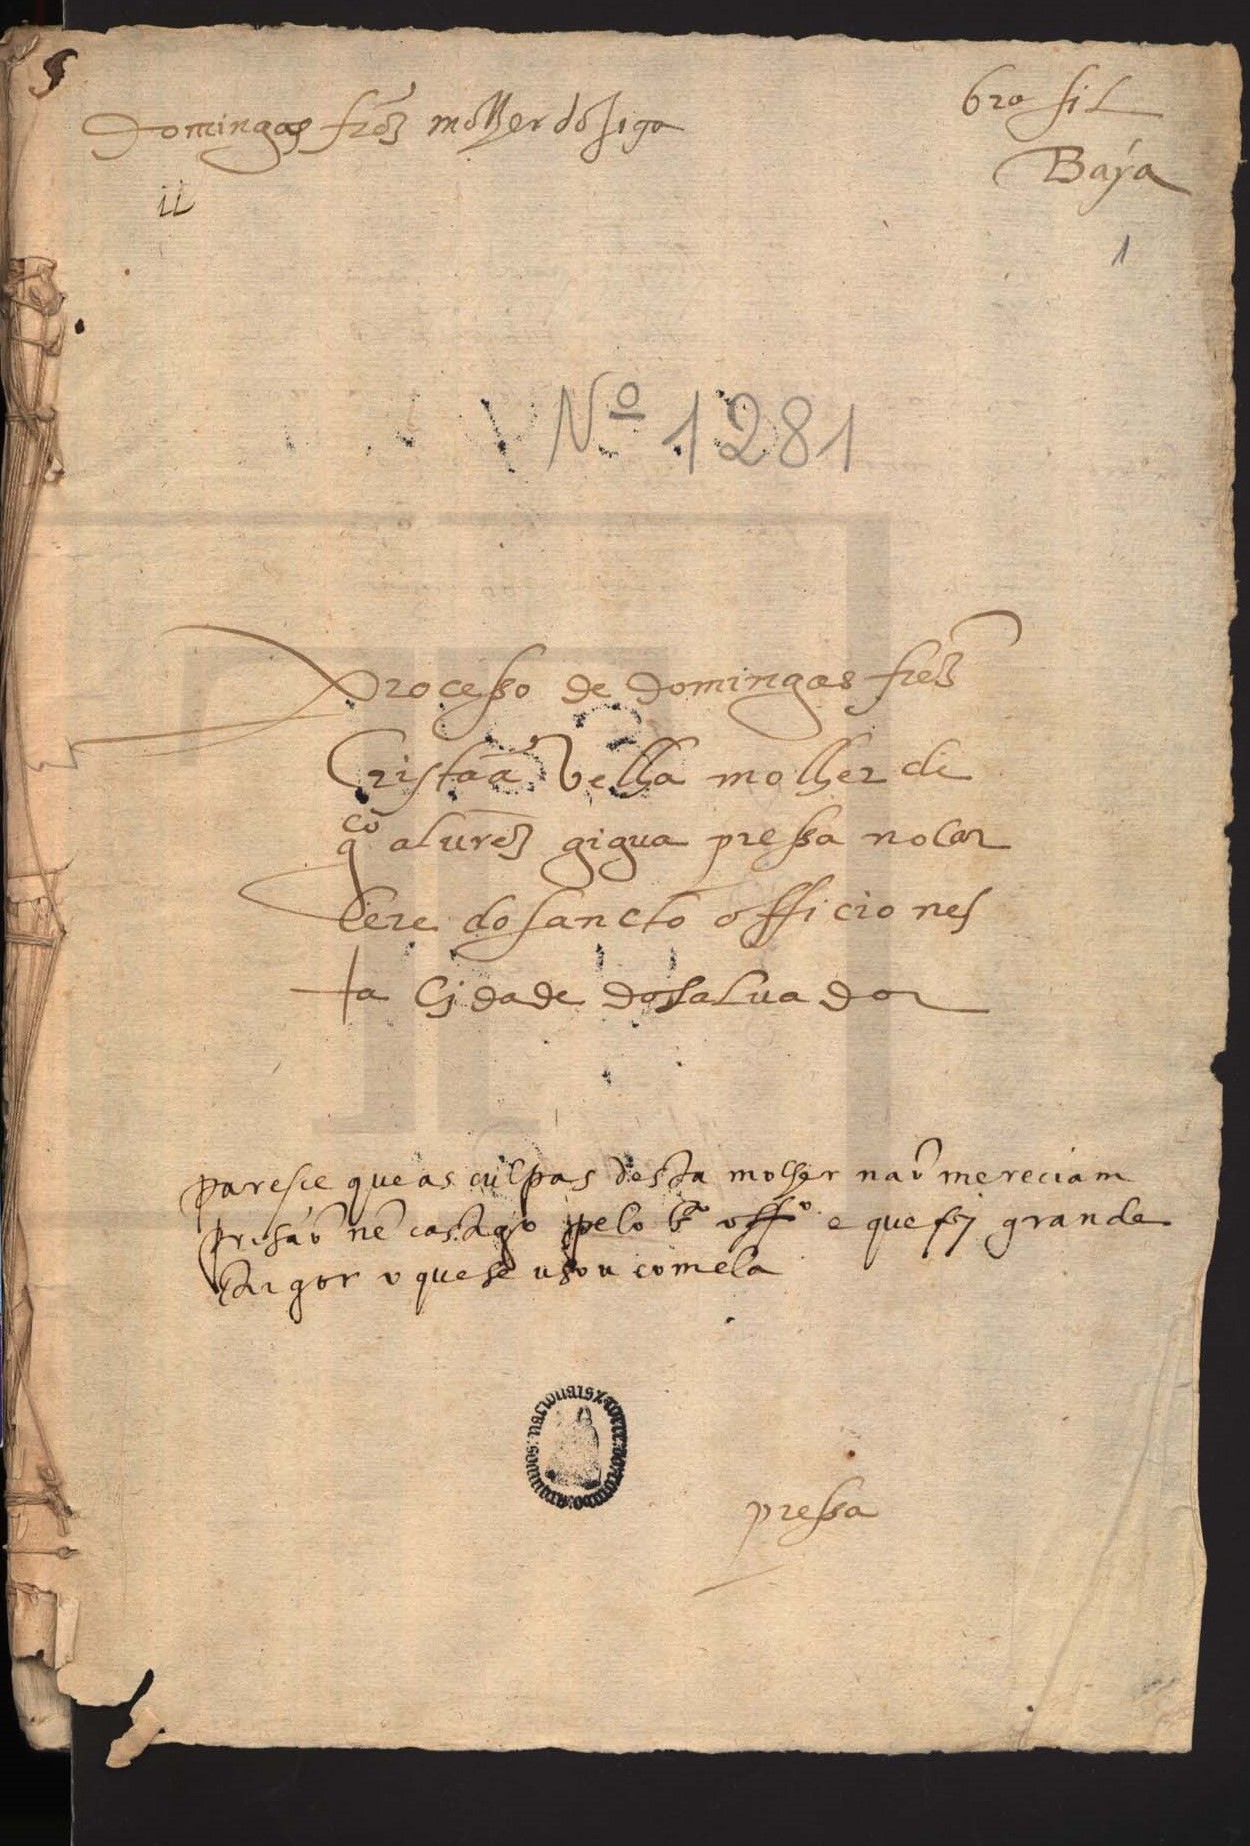 Domingas frz molher do giga
brasil
Baýa
1
Nº 1281
Processo de domingas frz
Cristaã velha molher de
gco aluréz gigua pressa no car
cere do sancto officio nes
ta Cidade do saluador
paresce que as culpas desta molher naõ mereciam
prisaõ nẽ castigo pelo sto offo e que foy grande
rigor o que se usou com ela
pressa